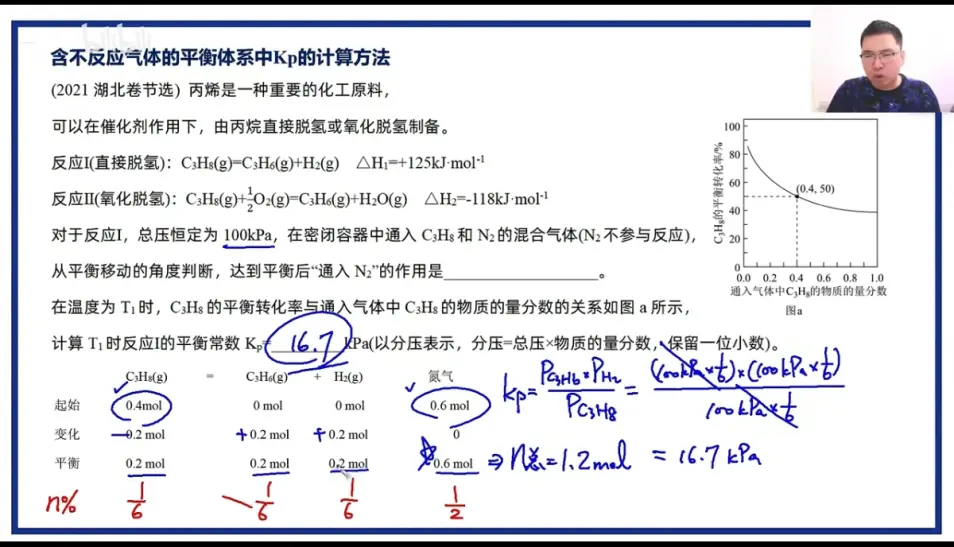 含不反应气体的平衡体系中Kp的计算方法
(2021 湖北卷节选) 丙烯是一种重要的化工原料，
可以在催化剂作用下，由丙烷直接脱氢或氧化脱氢制备。
反应I(直接脱氢)：C₃H₈(g)=C₃H₆(g)+H₂(g) △H₁=+125kJ·mol⁻¹
反应II(氧化脱氢)：C₃H₈(g)+½O₂(g)=C₃H₆(g)+H₂O(g) △H₂=-118kJ·mol⁻¹
对于反应I，总压恒定为 100kPa，在密闭容器中通入 C₃H₈ 和 N₂ 的混合气体(N₂ 不参与反应)，
从平衡移动的角度判断，达到平衡后“通入 N₂”的作用是____________________。
在温度为 T₁ 时，C₃H₈ 的平衡转化率与通入气体中 C₃H₈ 的物质的量分数的关系如图 a 所示，
计算 T₁ 时反应I的平衡常数 Kp= 16.7 kPa(以分压表示，分压=总压×物质的量分数，保留一位小数)。
C₃H₈的平衡转化率/%
100
80
60
40
20
0
(0.4, 50)
0.0 0.2 0.4 0.6 0.8 1.0
通入气体中C₃H₈的物质的量分数
图a
C₃H₈(g) = C₃H₆(g) + H₂(g) 氮气
起始 0.4mol 0 mol 0 mol 0.6 mol
变化 -0.2 mol +0.2 mol +0.2 mol 0
平衡 0.2 mol 0.2 mol 0.2 mol 0.6 mol ⇒ n总=1.2mol
n% 1/6 1/6 1/6 1/2
Kp= P_C₃H₆×P_H₂ / P_C₃H₈ = (100kPa×1/6)×(100kPa×1/6) / 100kPa×1/6
= 16.7 kPa